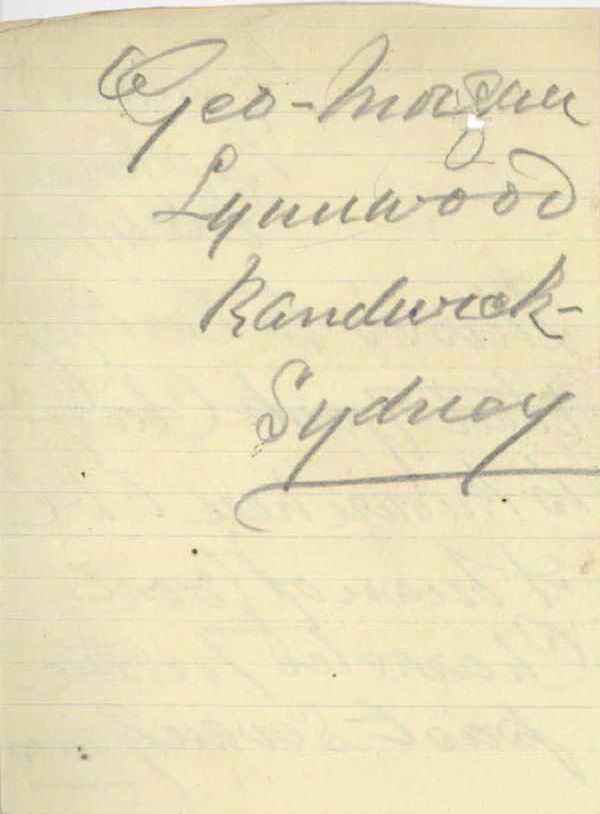 Geo - Morgan
Lynnwood
Randwick -
Sydney